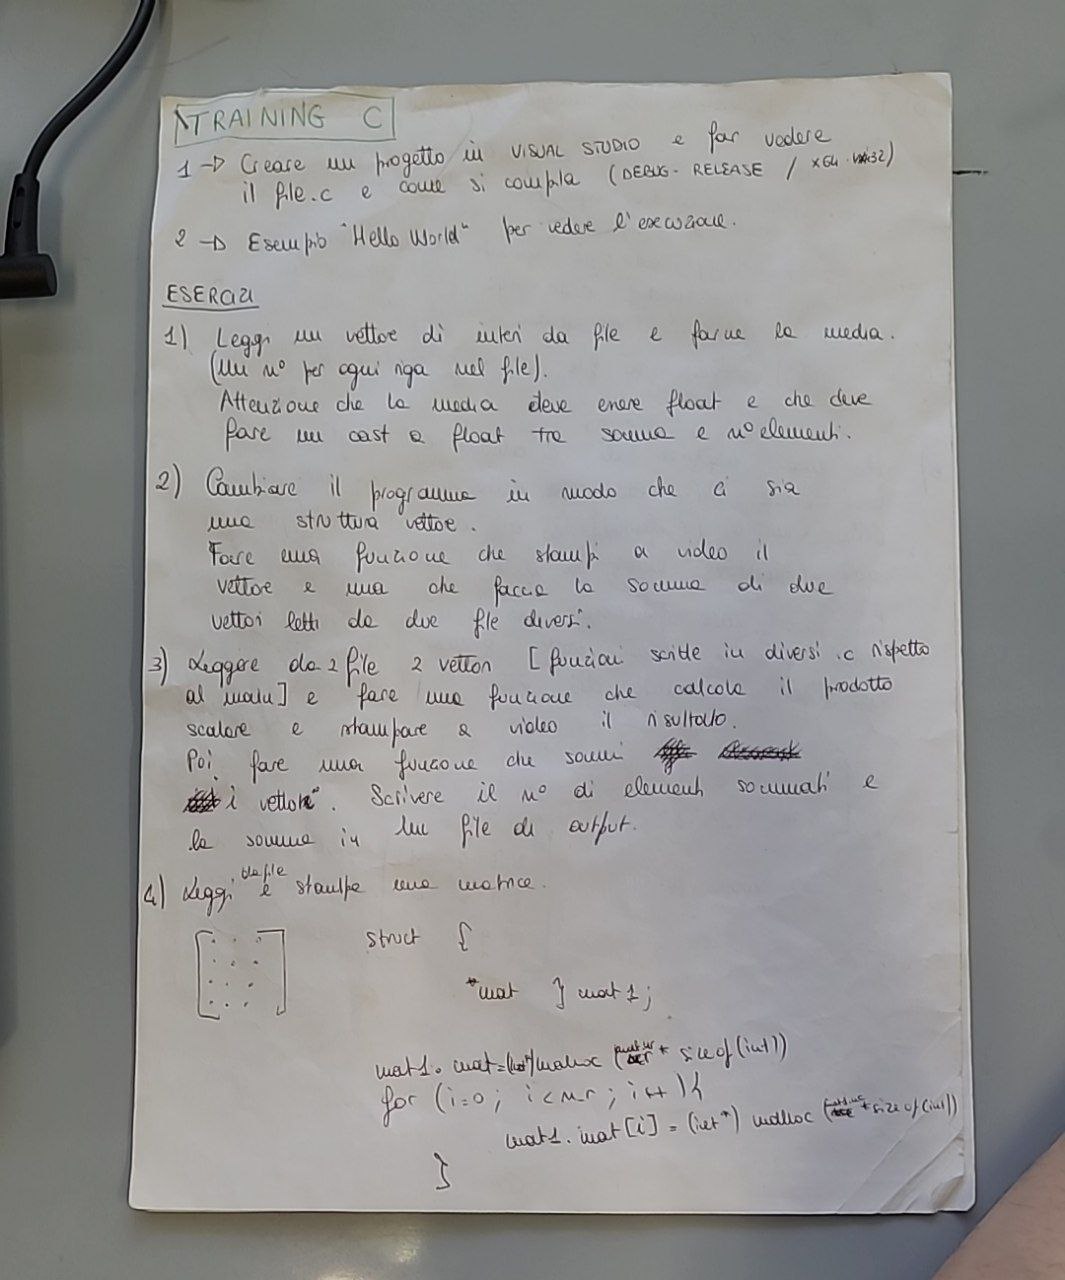 TRAINING C
1 → Creare un progetto in VISUAL STUDIO e far vedere
il file.c e come si compila (DEBUG - RELEASE / x64 - win32)
2 → Esempio "Hello World" per vedere l'esecuzione.
ESERCIZI
1) Leggi un vettore di interi da file e farne la media.
(Un n° per ogni riga nel file).
Attenzione che la media deve essere float e che deve
fare un cast a float tra somma e n° elementi.
2) Cambiare il programma in modo che ci sia
una struttura vettore.
Fare una funzione che stampi a video il
vettore e una che faccia la somma di due
vettori letti da due file diversi.
3) Leggere da 2 file 2 vettori [funzioni scritte in diversi .c rispetto
al main] e fare una funzione che calcola il prodotto
scalare e stampare a video il risultato.
Poi fare una funzione che sommi
i vettori. Scrivere il n° di elementi sommati e
la somma in un file di output.
4) Leggi da file e stampa una matrice.
struct {
*mat } mat1;
mat1.mat=(int*)malloc ( * sizeof(int))
for (i=0; i<n_r; i++){
mat1.mat[i] = (int*) malloc ( *sizeof(int))
}